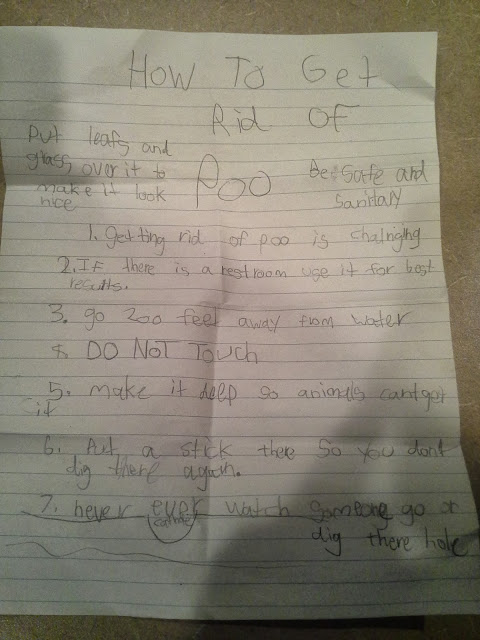 How To Get
Rid OF
Poo
Put leafs and
grass over it to
make it look
nice
Be Safe and
Sanitary
1. getting rid of poo is chalnging
2. If there is a restroom use it for best
results.
3. go 200 feet away from water
& DO NOT TOUCH
5. make it deep so animals cant get
it
6. Put a stick there so you dont
dig there again.
7. never ever watch someone go or
dig there hole